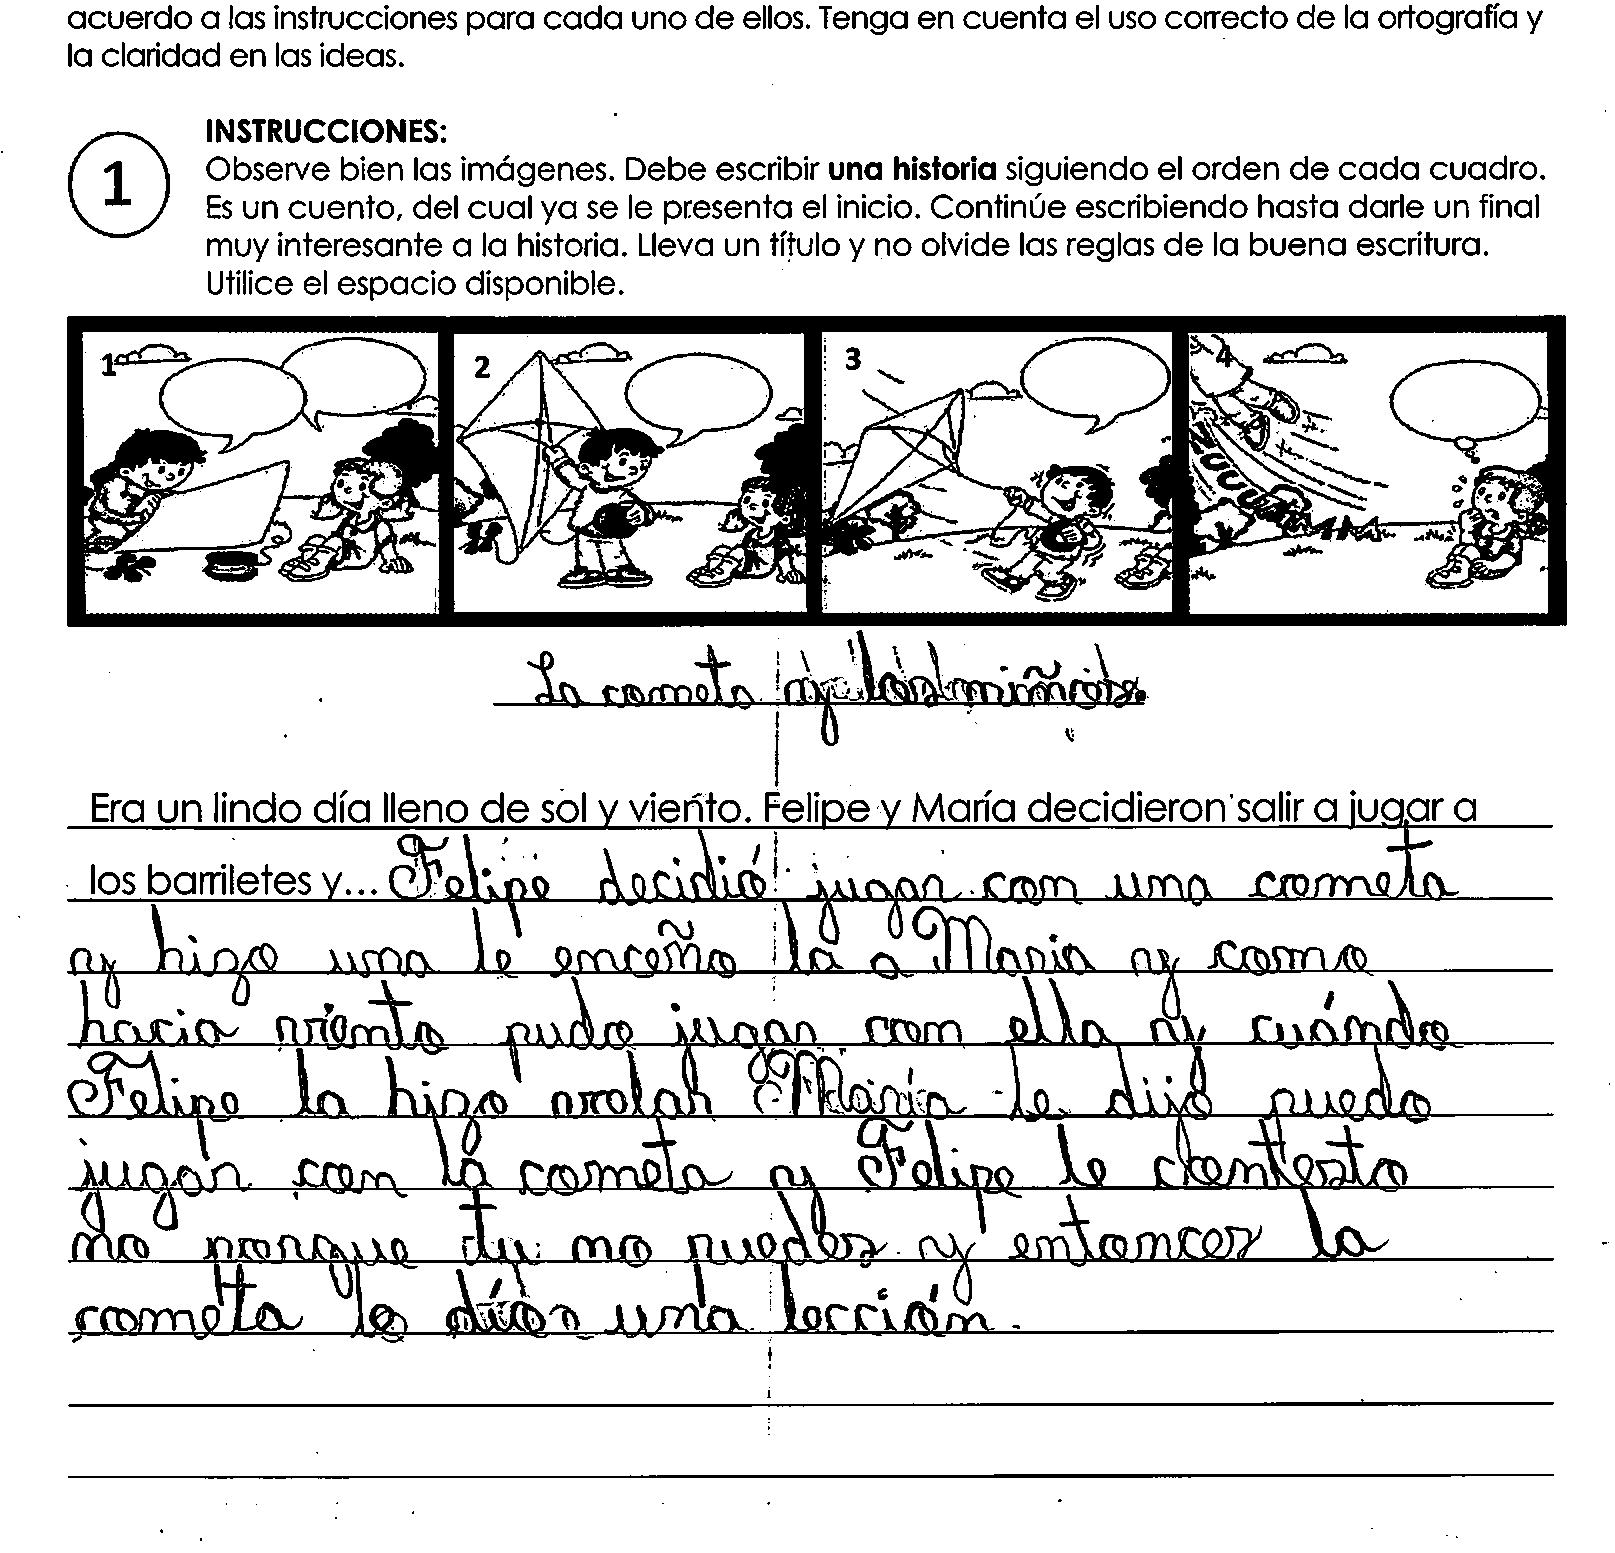 acuerdo a las instrucciones para cada uno de ellos. Tenga en cuenta el uso correcto de la ortografía y
la claridad en las ideas.
INSTRUCCIONES:
1
Observe bien las imágenes. Debe escribir una historia siguiendo el orden de cada cuadro.
Es un cuento, del cual ya se le presenta el inicio. Continúe escribiendo hasta darle un final
muy interesante a la historia. Lleva un título y no olvide las reglas de la buena escritura.
Utilice el espacio disponible.
1 2 3 4
La cometa y los niños.
Era un lindo día lleno de sol y viento. Felipe y María decidieron salir a jugar a
los barriletes y... Felipe decidió jugar con una cometa
y hizo una le enceño la a Maria y como
hacia viento pudo jugar con ella y cuándo
Felipe la hizo volah María le dijo puedo
jugar con la cometa y Felipe le contesto
no porque tu no puedes y entonces la
cometa le dio una lección.